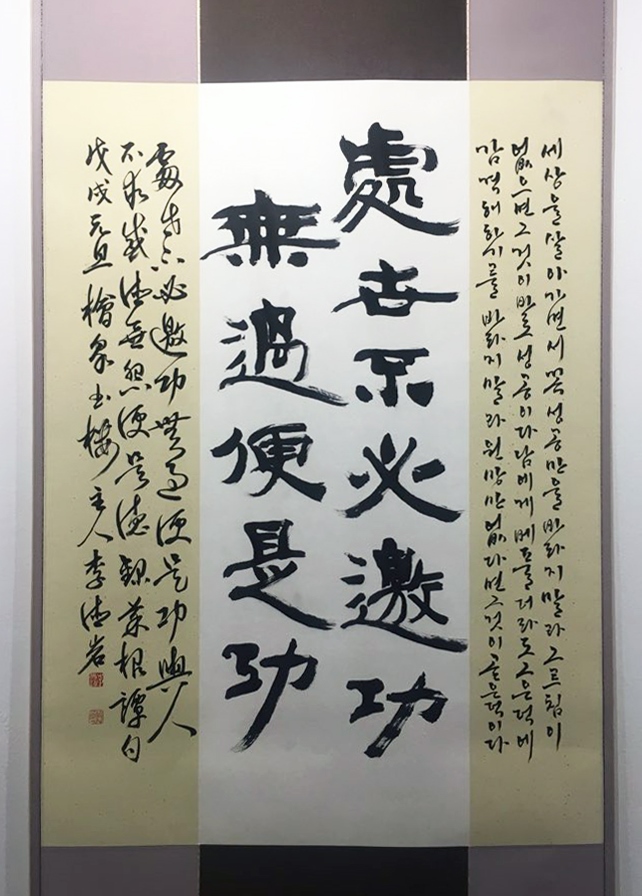 세상을살아가면서꼭성공만을바라지말라그르침이
없으면그것이바로성공이다남에게베풀더라도그은덕에
감격해하기를바라지말라원망만없다면그것이곧은덕이다
處世不必邀功
無過便是功
處世不必邀功無過便是功與人
不求感德無怨便是德録菜根譚句
戊戌元旦檜書樓主人李德岩